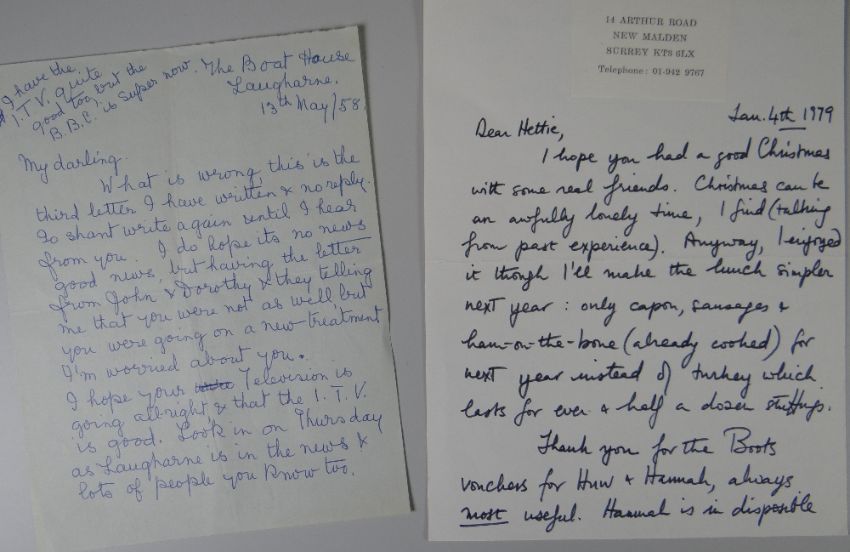 I have the
I.T.V. quite
good too, but the
B.B.C. is super now.
The Boat House
Laugharne.
13th May/58.
My darling.
What is wrong, this is the
third letter I have written & no reply.
So shant write again until I hear
from you. I do hope its no news
good news, but having the letter
from John & Dorothy & they telling
me that you were not as well, but
you were going on a new treatment
I'm worried about you.
I hope your Television is
going allright & that the I.T.V.
is good. Look in on Thursday
as Laugharne is in the news &
lots of people you know too.
14 ARTHUR ROAD
NEW MALDEN
SURREY KT3 6LX
Telephone: 01-942 9767
Jan. 4th 1979
Dear Hettie,
I hope you had a good Christmas
with some real friends. Christmas can be
an awfully lonely time, I find (talking
from past experience). Anyway, I enjoyed
it though I'll make the lunch simpler
next year: only capon, sausages &
ham-on-the-bone (already cooked) for
next year instead of turkey which
lasts for ever & half a dozen stuffings.
Thank you for the Boots
vouchers for Huw & Hannah, always
most useful. Hannah is in disposible